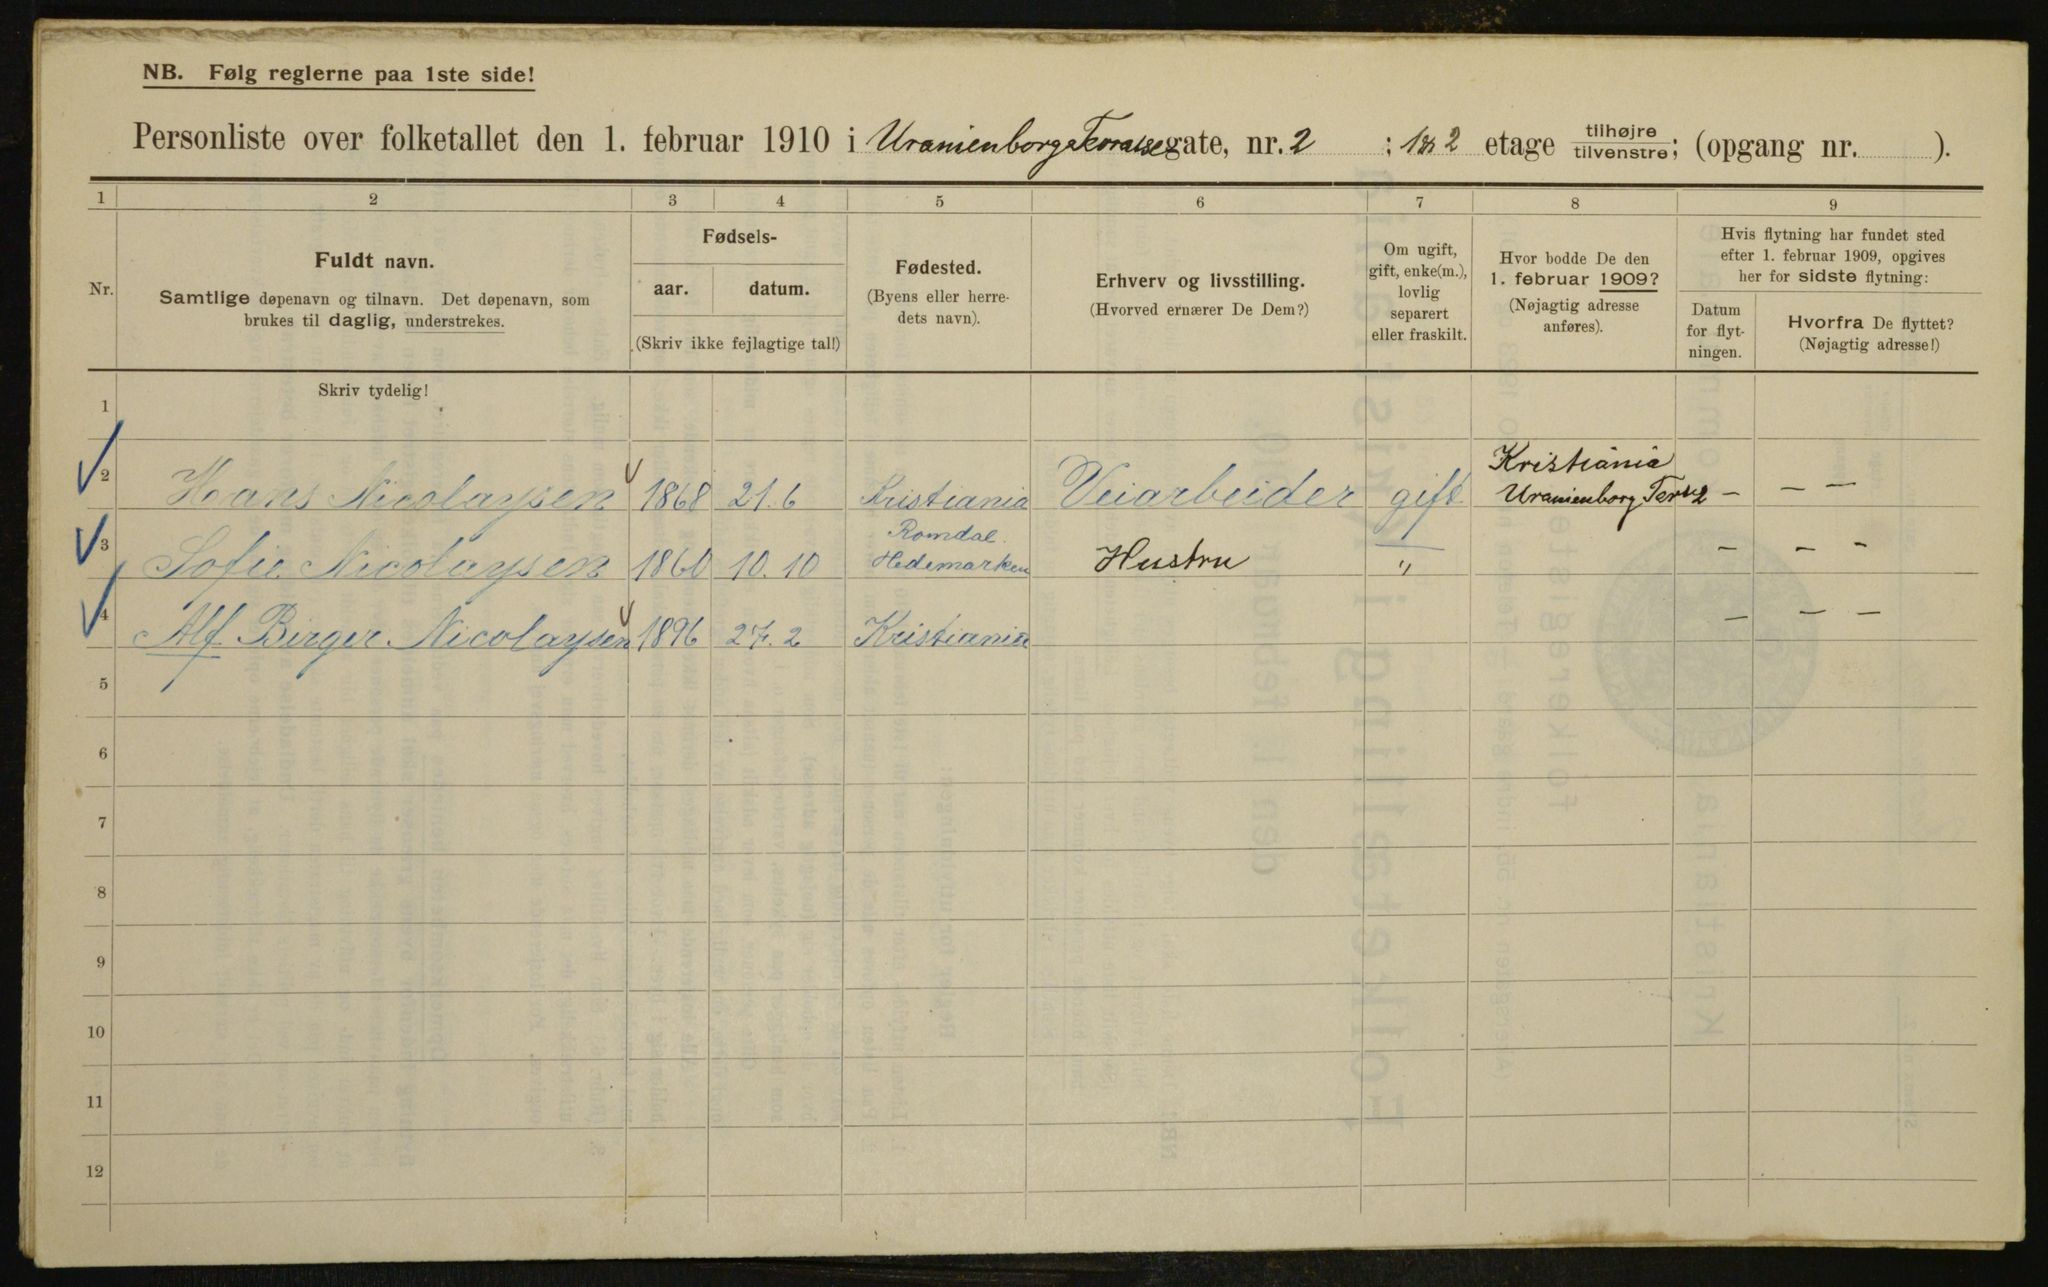 NB. Følg reglerne paa 1ste side!
Personliste over folketallet den 1. februar 1910 i Uranienborg Terrasse gate, nr. 2 ; 2 etage tilhøjre tilvenstre; (opgang nr. ).
1 2 3 4 5 6 7 8 9
Nr.
Fuldt navn.
Samtlige døpenavn og tilnavn. Det døpenavn, som
brukes til daglig, understrekes.
Fødsels-
aar. datum.
(Skriv ikke fejlagtige tal!)
Fødested.
(Byens eller herre-
dets navn).
Erhverv og livsstilling.
(Hvorved ernærer De Dem?)
Om ugift,
gift, enke(m.),
lovlig
separert
eller fraskilt.
Hvor bodde De den
1. februar 1909?
(Nøjagtig adresse
anføres).
Hvis flytning har fundet sted
efter 1. februar 1909, opgives
her for sidste flytning:
Datum
for flyt-
ningen.
Hvorfra De flyttet?
(Nøjagtig adresse!)
Skriv tydelig!
1
2 Hans Nicolaysen 1868 21.6 Kristiania Veiarbeider gift Kristiania
Uranienborg Terr 2 – – –
3 Sofie Nicolaysen 1860 10.10 Romdal.
Hedemarken Hustru " – – –
4 Alf Birger Nicolaysen 1896 27.2 Kristiania – – –
5
6
7
8
9
10
11
12